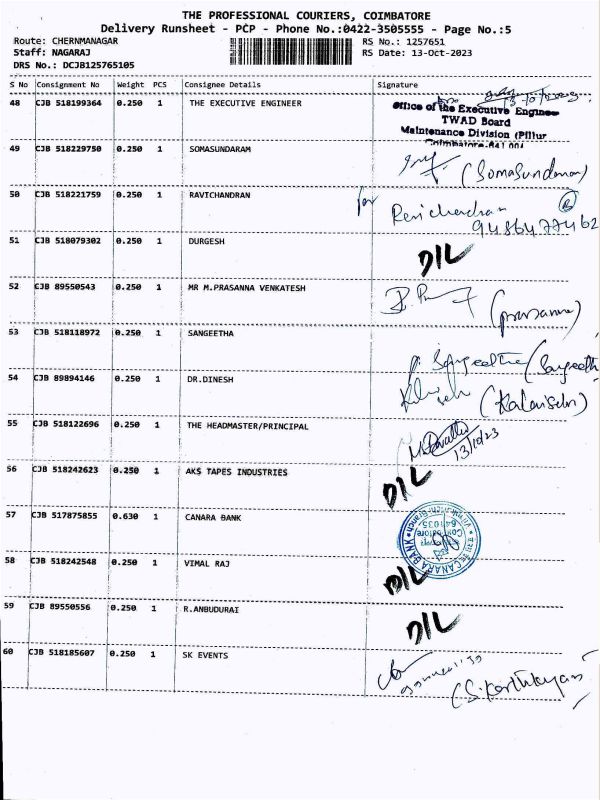 THE PROFESSIONAL COURIERS, COIMBATORE
Delivery Runsheet - PCP - Phone No.:0422-3505555 - Page No.:5
Route: CHERNMANAGAR RS No.: 1257651
Staff: NAGARAJ RS Date: 13-Oct-2023
DRS No.: DCJB125765105
S No Consignment No Weight PCS Consignee Details Signature
48 CJB 518199364 0.250 1 THE EXECUTIVE ENGINEER
Office of the Executive Engineer
TWAD Board
Maintenance Division (Pillur
Coimbatore-641 001
49 CJB 518229750 0.250 1 SOMASUNDARAM
(Somasundaram)
50 CJB 518221759 0.250 1 RAVICHANDRAN
for Ravichandran
9486477462
51 CJB 518079302 0.250 1 DURGESH
D/L
52 CJB 89550543 0.250 1 MR M.PRASANNA VENKATESH
(prasanna)
53 CJB 518118972 0.250 1 SANGEETHA
P. Sangeetha (Sangeeth
54 CJB 89894146 0.250 1 DR.DINESH
(Kalaiselvi)
55 CJB 518122696 0.250 1 THE HEADMASTER/PRINCIPAL
13/10/23
56 CJB 518242623 0.250 1 AKS TAPES INDUSTRIES
D/L
57 CJB 517875855 0.630 1 CANARA BANK
CANARA BANK
Coimbatore
641035
58 CJB 518242548 0.250 1 VIMAL RAJ
D/L
59 CJB 89550556 0.250 1 R.ANBUDURAI
D/L
60 CJB 518185607 0.250 1 SK EVENTS
(S.Karthikeyan)